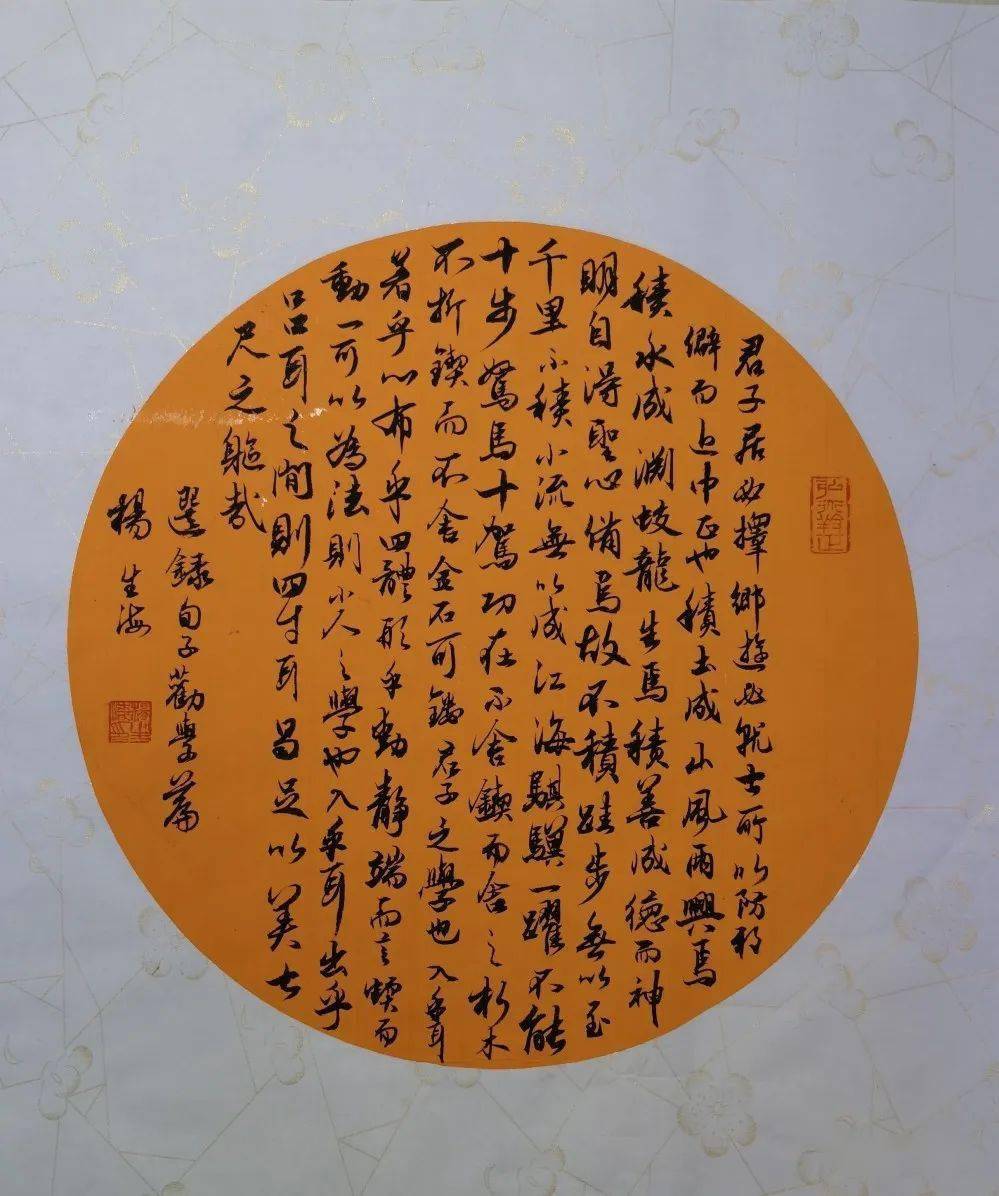 君子居必擇鄉遊必就士所以防邪
僻而近中正也積土成山風雨興焉
積水成淵蛟龍生焉積善成德而神
明自得聖心備焉故不積跬步無以至
千里不積小流無以成江海騏驥一躍不能
十步駑馬十駕功在不舍鍥而舍之朽木
不折鍥而不舍金石可鏤君子之學也入乎耳
著乎心布乎四體形乎動靜端而言蝡而
動一可以為法則小人之學也入乎耳出乎
口口耳之間則四寸耳曷足以美七
尺之軀哉
選錄荀子勸學篇
楊生海